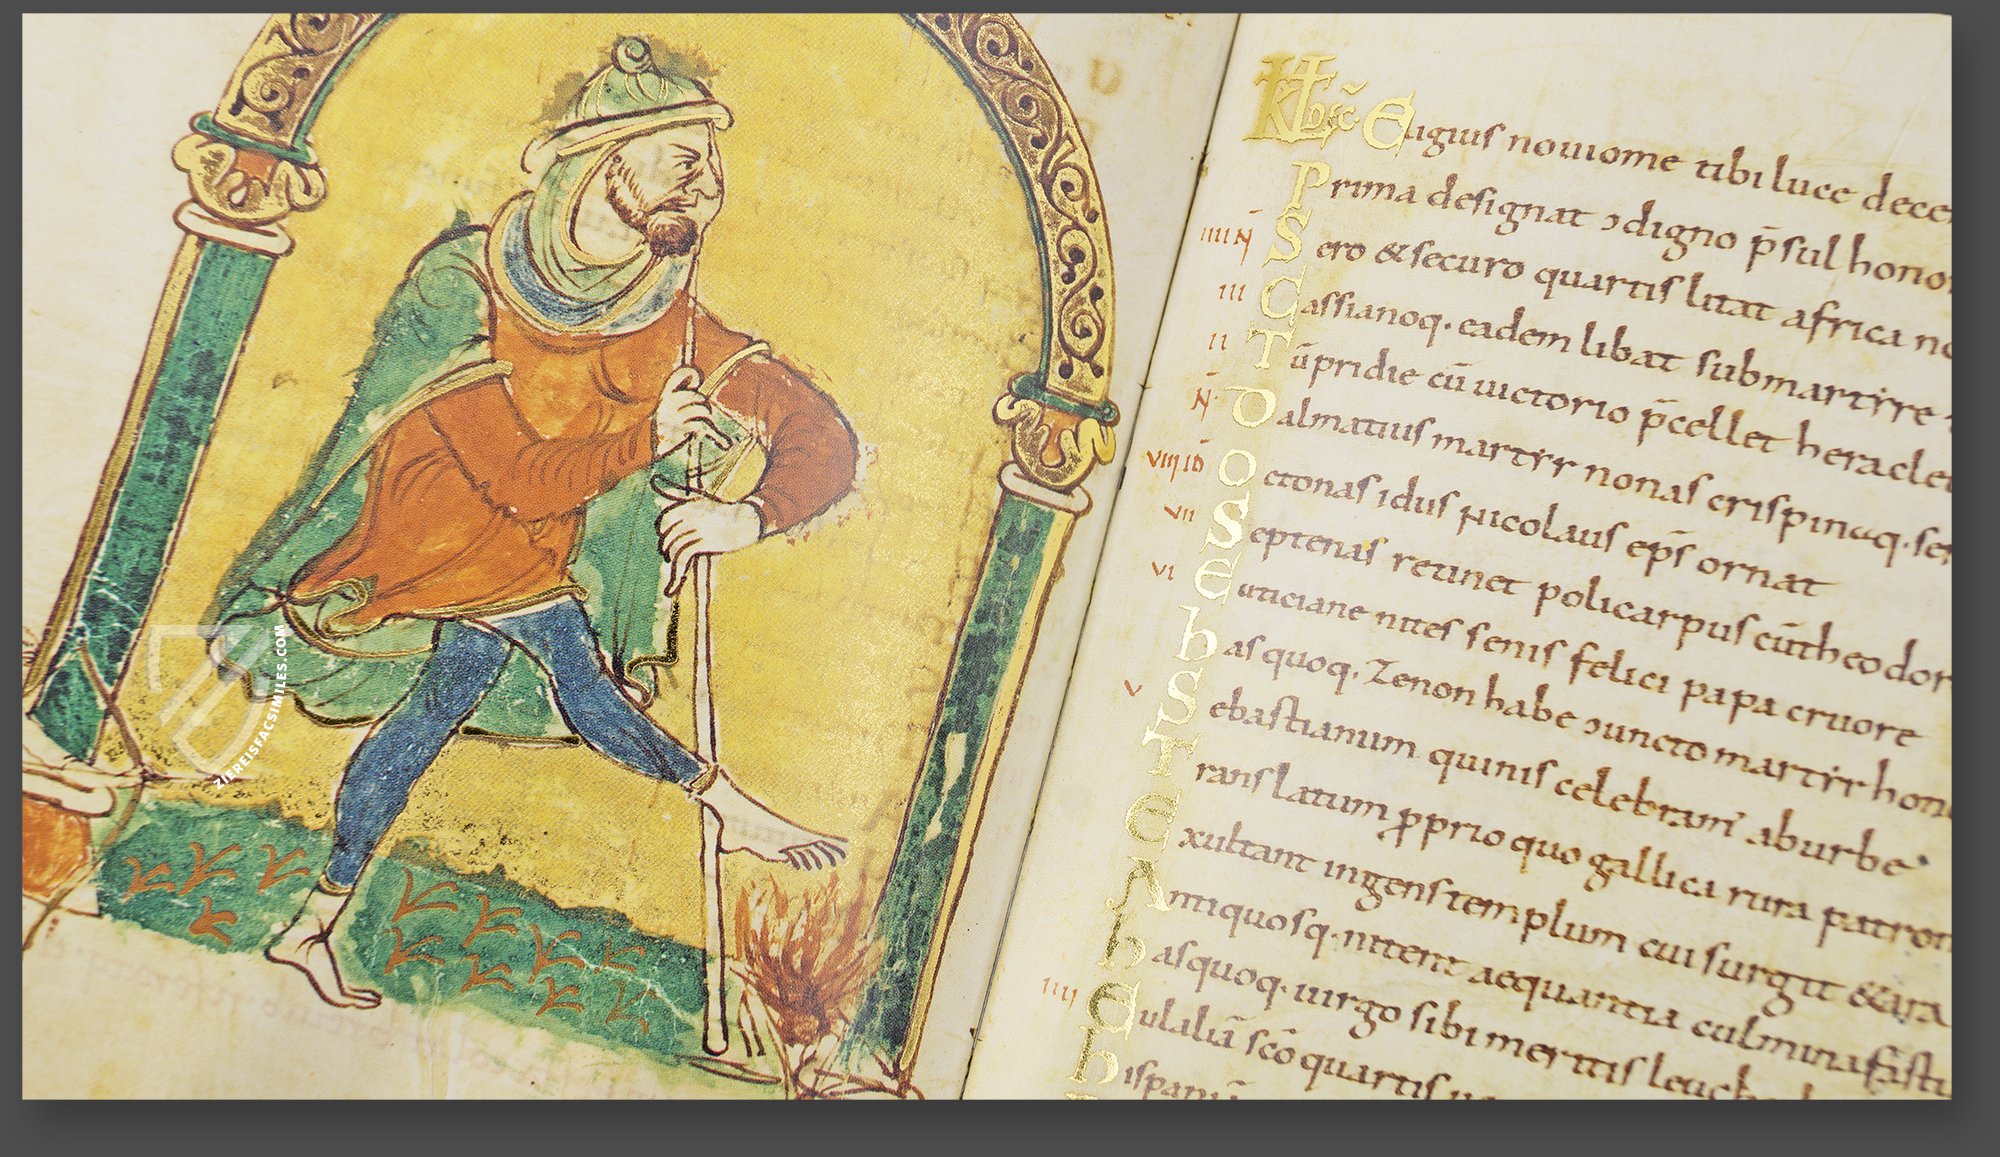 ZIEREISFACSIMILES.COM
KL Decb Eligius nouiome tibi luce
Prima designat ɔdigno p̄sul
IIII N Sero & securo quartis litat africa
III Cassianoq. eadem libat sub martÿre
II Tū pridie cū uictorio p̄cellet
N̄ Dalmatius martÿr nonas crispinaq.
VIII ID Octonas idus nicolaus ep̄s ornat
VII Septenas retinet policarpus cūtheodor
VI Euticiane nites senis felici papa cruore
has quoq. Zenon habe ɔiuncto martÿr
V Sebastianum quinis celebram' aburbe
Translatum p̱prio quo gallica rura
Exultant ingens templum cui surgit & ara
Antiquosq. nitent aequantia culmina
has quoq. uirgo sibi meritis
IIII Eulaliā sc̄o quartis